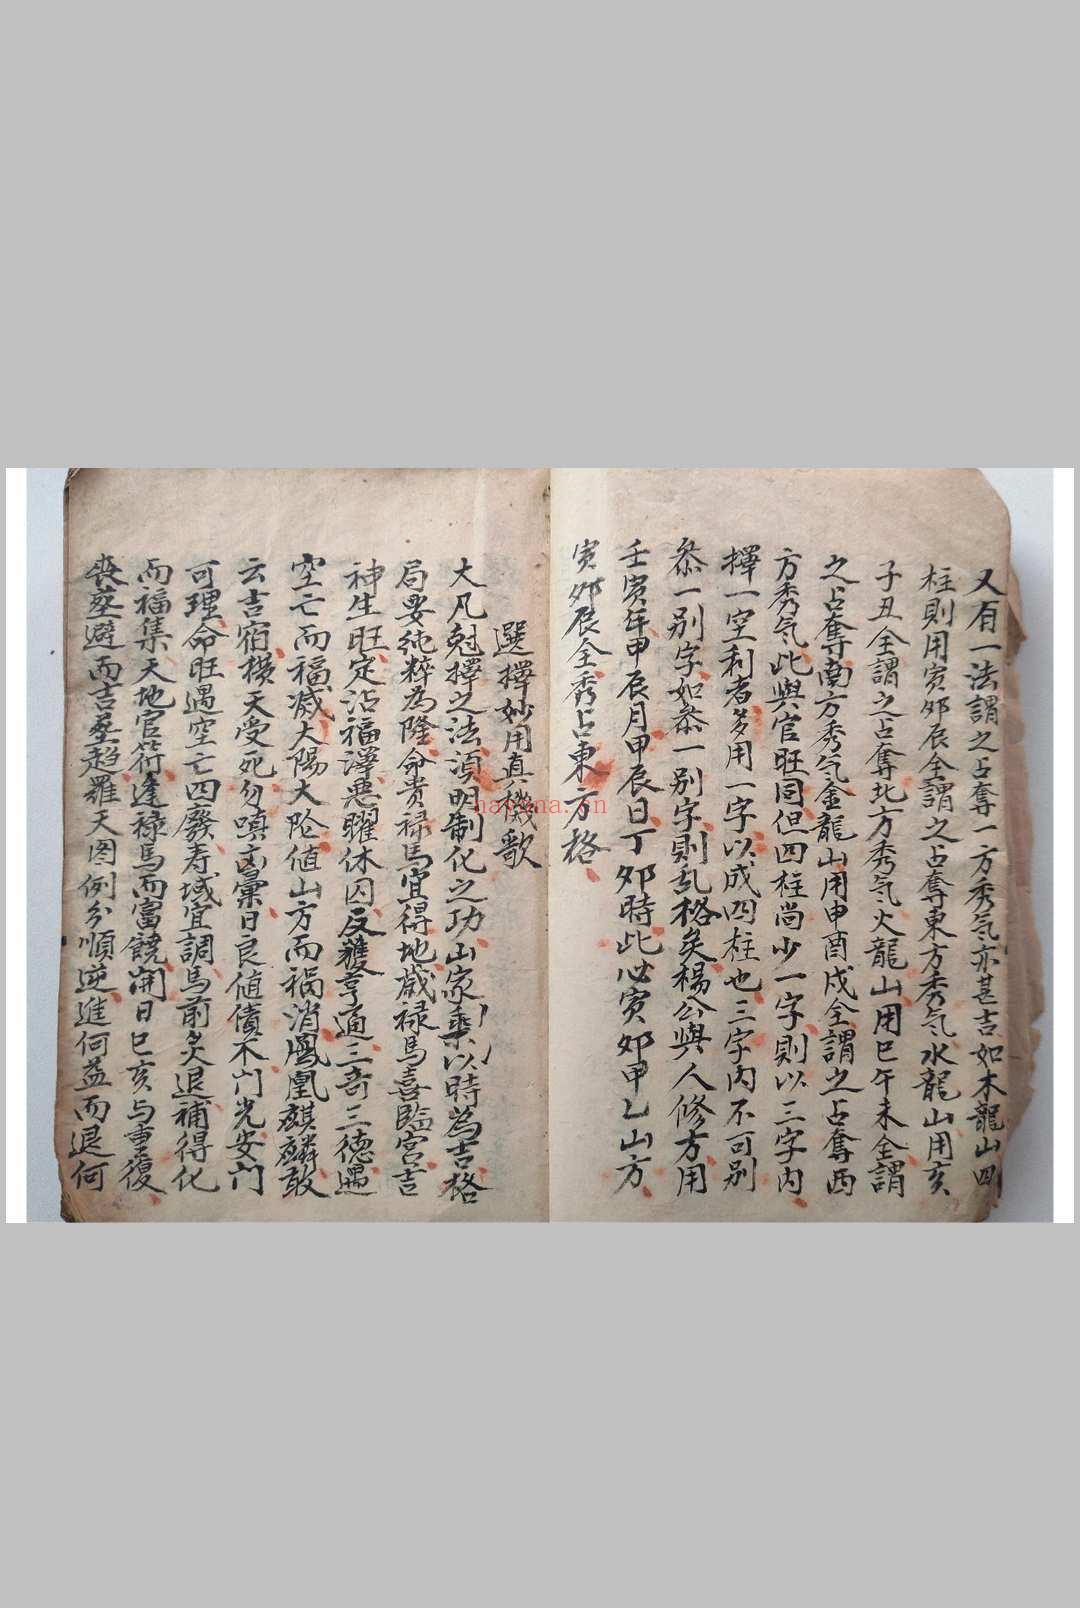 又有一法謂之占奪一方秀気亦甚吉如木龍山四
柱則用寅卯辰全謂之占奪東方秀気水龍山用亥
子丑全謂之占奪北方秀气火龍山用巳午未全謂
之占奪南方秀气金龍山用申酉戌全謂之占奪西
方秀気此與官旺同但四柱尚少一字則以三字內
擇一空利者多用一字以成四柱也三字內不可別
叅一别字如叅一别字則乱格矣楊公與人修方用
壬寅年甲辰月甲辰日丁卯時此必寅卯甲乙山方
寅卯辰全秀占東方格
選擇妙用真機歌
大凡尅擇之法須明制化之功山家乘以時為吉格
局要純粹為隆命贵禄馬宜得地歳禄馬喜臨宮吉
神生旺定沾福澤悪曜休囚反難亨通三竒三德遇
空亡而福减大陽大阴值山方而禍消鳳凰麒麟敢
云吉宿横天受死勿嗔凶彙日良值債不門光安門
可理命旺遇空亡四廢寿域宜調馬前炙退補得化
而福集天地官符逢禄馬而富饒開日巳亥与重復
丧塟避而吉塟趋羅天图例分順逆進何益而退何
hahana.cn